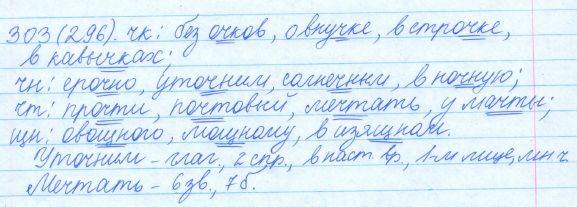 303(296). чк: без очков, о внучке, в строчке,
в кавычках;
чн: срочно, уточним, солнечным, в ночную;
чт: прочти, почтовый, мечтать, у мачты;
щн: овощного, мощному, в изящном.
Уточним - глаг, 2 спр, в наст вр, 1-м лице, мн ч.
Мечтать - 6 зв., 7 б.